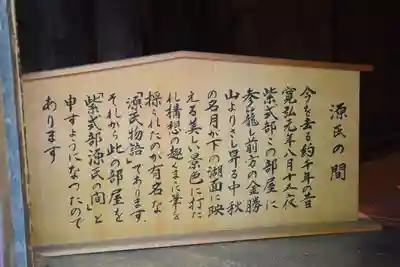 源氏の間
今を去る約千年の昔
寛弘元年八月十五夜
紫式部この部屋に
参篭し前方の金勝
山よりさし昇る中秋
の名月が下の湖面に映
える美しい景色に打た
れ構想の趣くまゝに筆を
採られたのが有名な
「源氏物語」であります
それから此の部屋を
「紫式部源氏の間」と
申すようになつたので
あります